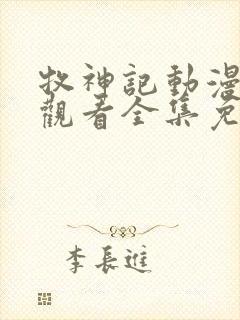 牧神記動漫
觀看全集免
李長進